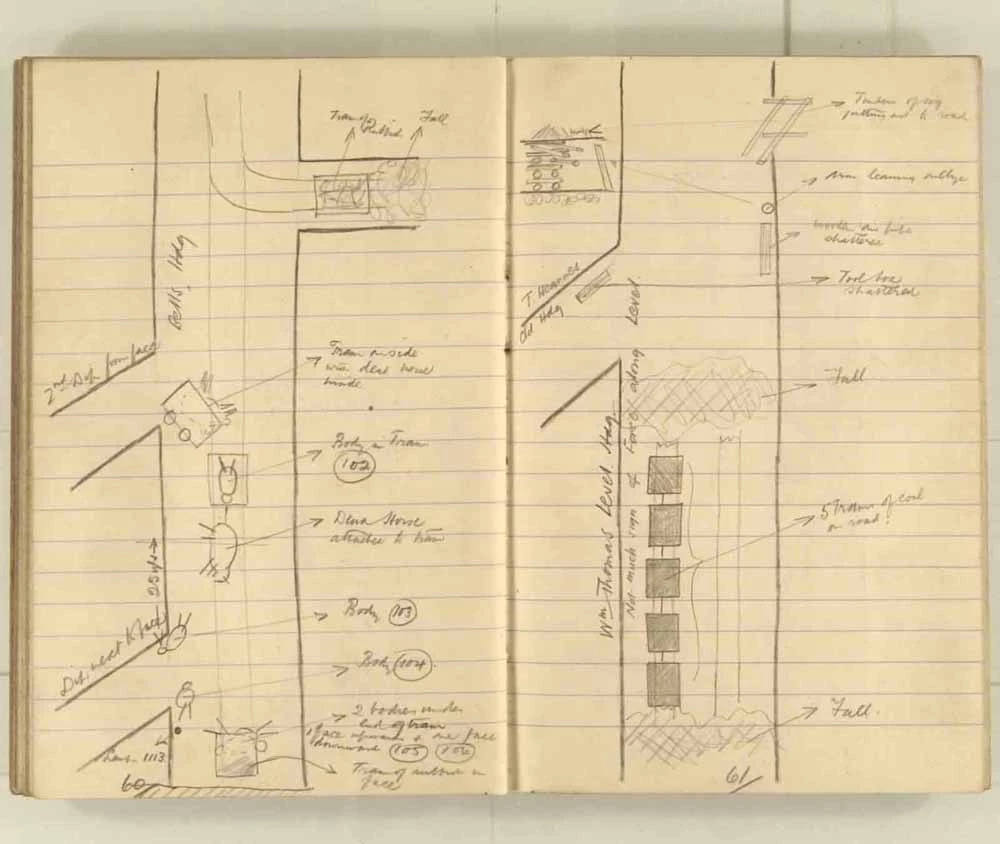 Tram of
Rubbish
Fall
Bells Hdg
2nd Dip from face
Tram on side
with dead horse
Body in Tram
102
Dead Horse
attached to tram
25 yds
Body 103
Dip next to face
Body 104.
2 bodies under
end of tram
1 face upwards & one face
downward 105 106
Tram of rubbish in
face
Lamp 1113
60
Timbers of
jutting out to road
Man leaning
Wooden air pipe
shattered
Tool box
shattered
T. Heavens
Old Hdg
Fall
Wm Thomas Level Hdg
Not much sign of Force along Level.
5 Trams of coal
on road.
Fall.
61